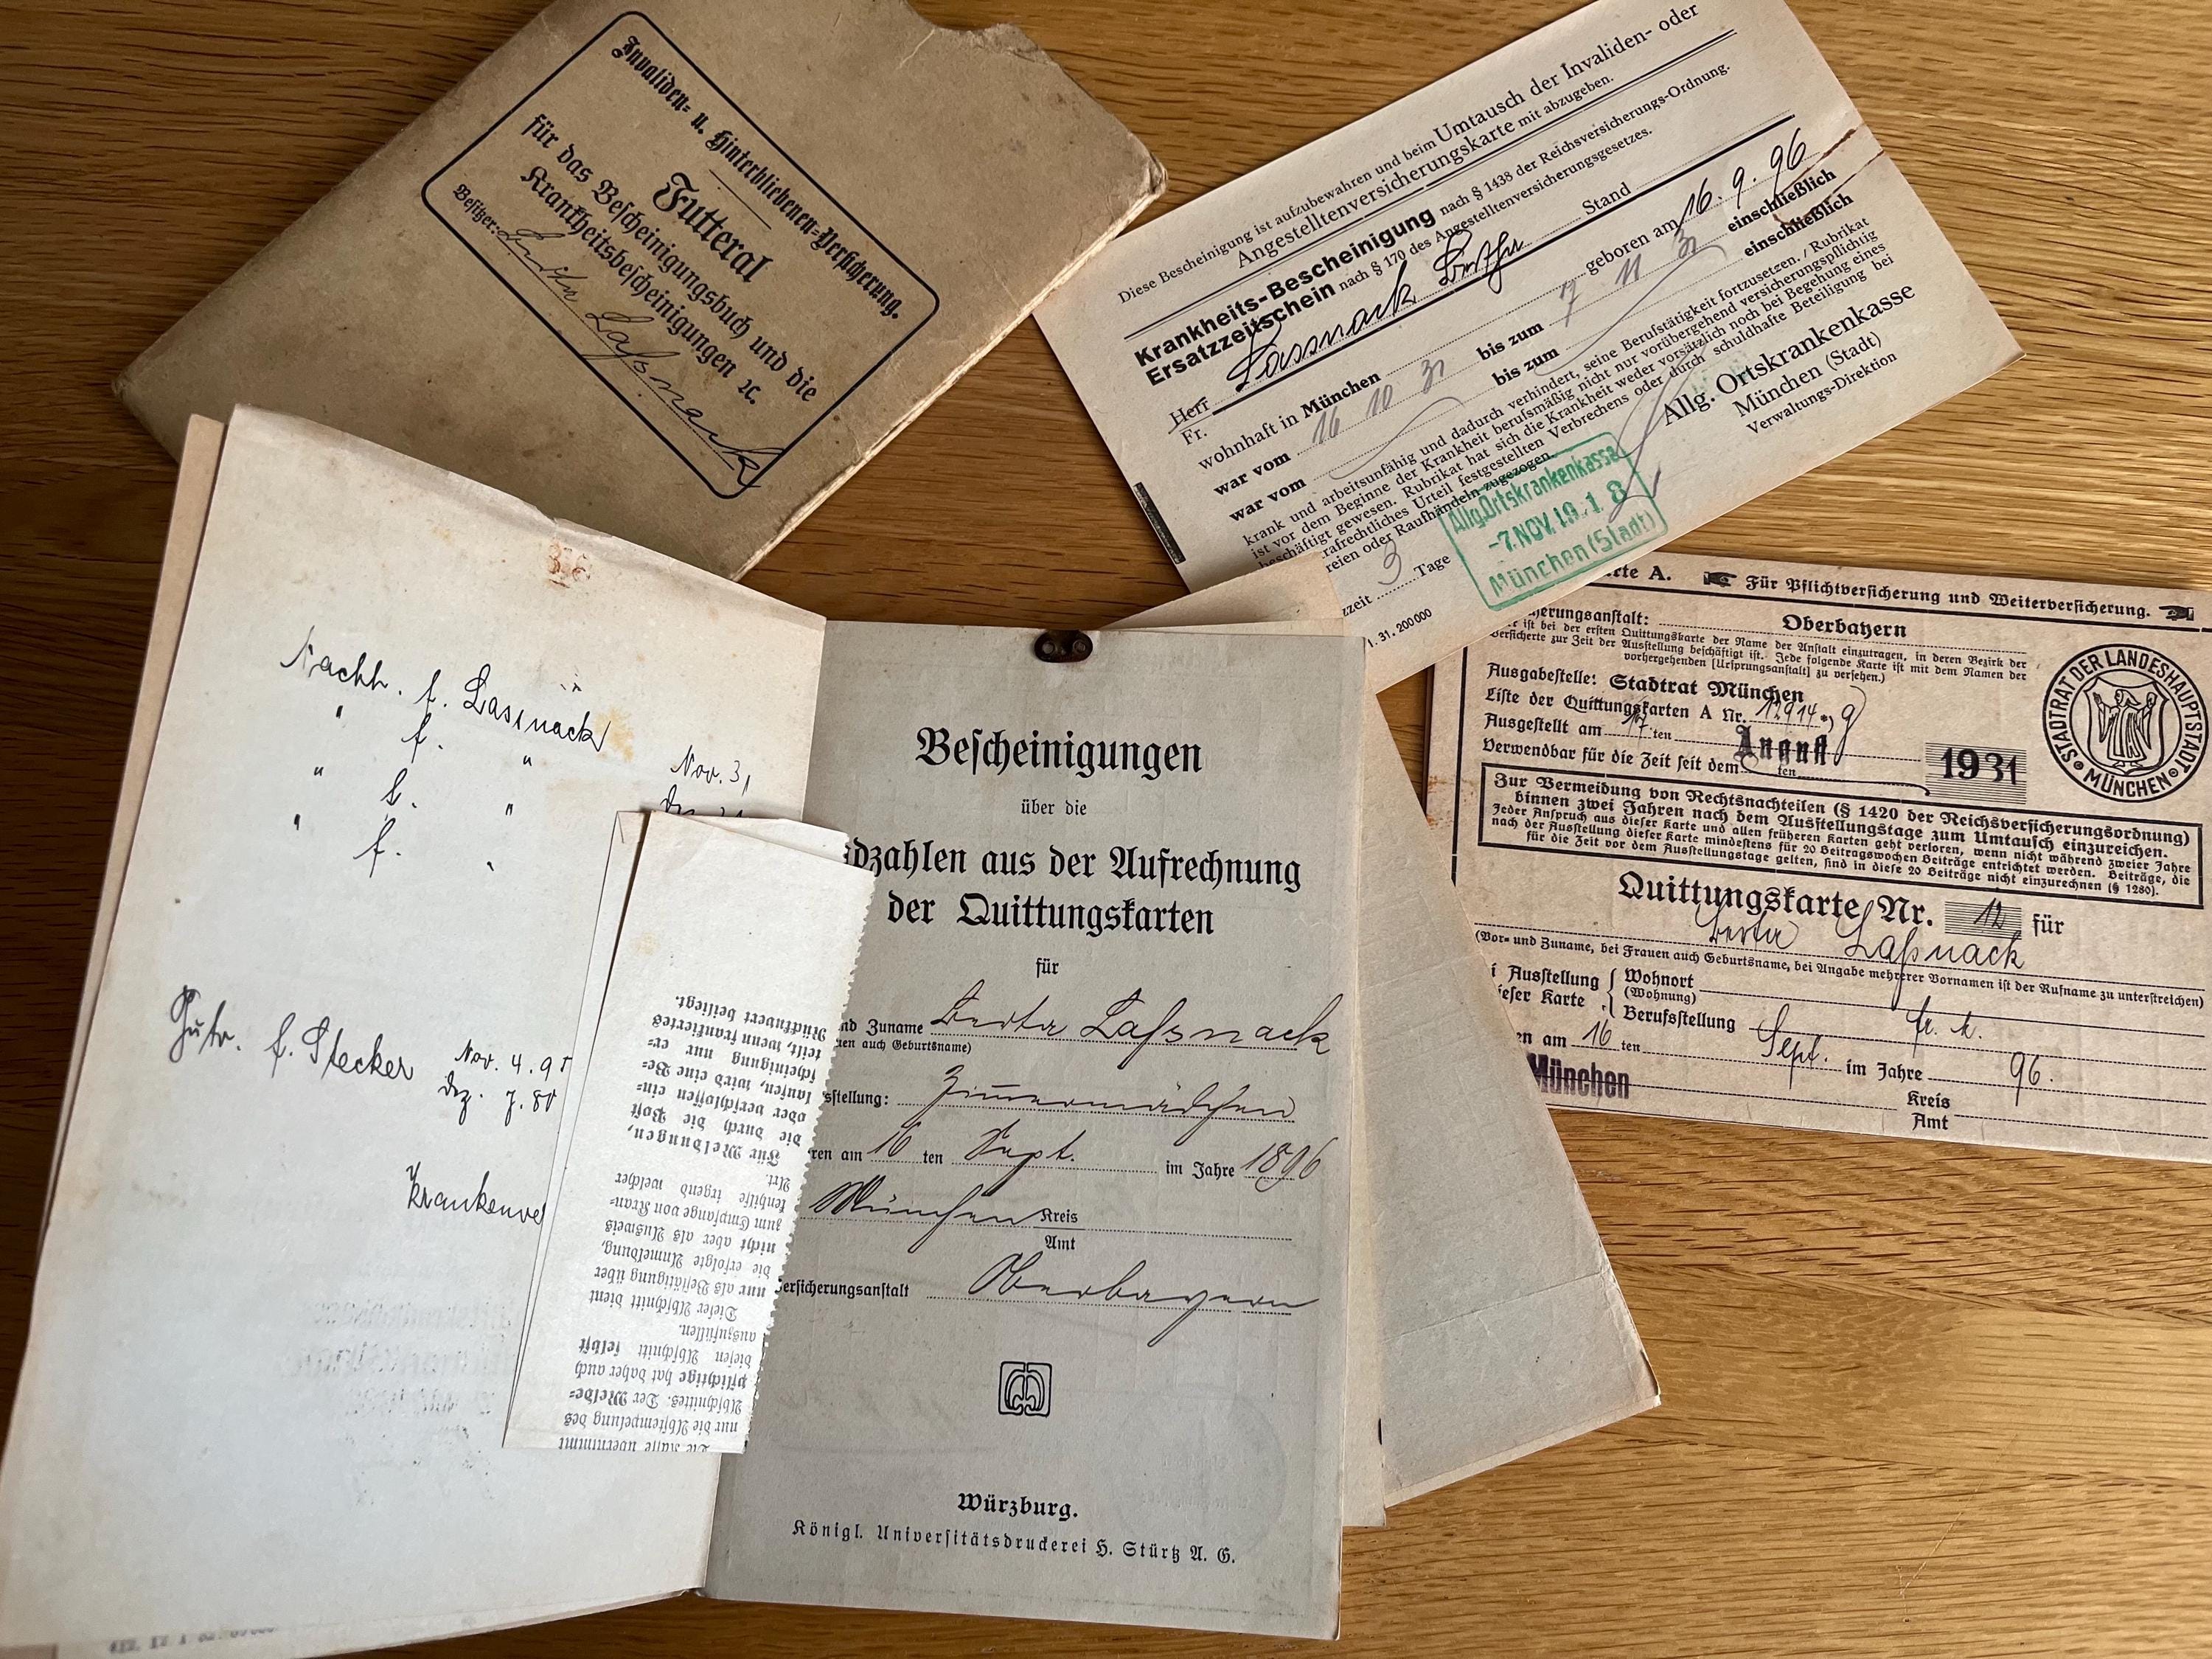 Invaliden- u. Hinterbliebenen-Versicherung.
Futteral
für das Bescheinigungsbuch und die
Krankheitsbescheinigungen ꝛc.
Besitzer: Berta Lassnack
Diese Bescheinigung ist aufzubewahren und beim Umtausch der Invaliden- oder
Angestelltenversicherungskarte mit abzugeben.
Krankheits-Bescheinigung nach § 1438 der Reichsversicherungs-Ordnung.
Ersatzzeitschein nach § 170 des Angestelltenversicherungsgesetzes.
Herr
Fr.
Lassnack Bertha Stand
wohnhaft in München geboren am 16.9.96
war vom 16 10 31 bis zum 7 11 31 einschließlich
war vom bis zum einschließlich
krank und arbeitsunfähig und dadurch verhindert, seine Berufstätigkeit fortzusetzen. / Rubrikat
ist vor dem Beginne der Krankheit berufsmäßig nicht nur vorübergehend versicherungspflichtig
beschäftigt gewesen. Rubrikat hat sich die Krankheit weder vorsätzlich noch bei Begehung eines
strafrechtliches Urteil festgestellten Verbrechens oder durch schuldhafte Beteiligung bei
reien oder Raufhändeln zugezogen.
Allg. Ortskrankenkasse
München (Stadt)
Verwaltungs-Direktion
zeit 3 Tage
Allg. Ortskrankenkasse
-7. NOV. 19.1.8
München (Stadt)
1. 31. 200000
rte A. Für Pflichtversicherung und Weiterversicherung.
cherungsanstalt: Oberbayern
ist bei der ersten Quittungskarte der Name der Anstalt einzutragen, in deren Bezirk der
Versicherte zur Zeit der Ausstellung beschäftigt ist. Jede folgende Karte ist mit dem Namen der
vorhergehenden [Ursprungsanstalt] zu versehen.)
Ausgabestelle: Stadtrat München
Liste der Quittungskarten A Nr. 12914
Ausgestellt am 17 ten August 1931
Verwendbar für die Zeit seit dem ten
STADTRAT DER LANDESHAUPTS
MÜNCHEN
Zur Vermeidung von Rechtsnachteilen (§ 1420 der Reichsversicherungsordnung)
binnen zwei Jahren nach dem Ausstellungstage zum Umtausch einzureichen.
Jeder Anspruch aus dieser Karte und allen früheren Karten geht verloren, wenn nicht während zweier Jahre
nach der Ausstellung dieser Karte mindestens für 20 Beitragswochen Beiträge entrichtet werden. Beiträge, die
für die Zeit vor dem Ausstellungstage gelten, sind in diese 20 Beiträge nicht einzurechnen (§ 1280).
Quittungskarte Nr. 12 für
Berta Laßnack
(Vor- und Zuname, bei Frauen auch Geburtsname, bei Angabe mehrerer Vornamen ist der Rufname zu unterstreichen)
i Ausstellung
ieser Karte
Wohnort
(Wohnung)
Berufsstellung
en am 16 ten Sept. im Jahre 96.
München
Kreis
Amt
336
Nachh. f. Lassnack
" f. " Nov. 31
" f. "
" f.
f. Stecker Nov. 4.95
Dez. 7.80
Krankenve
Bescheinigungen
über die
dzahlen aus der Aufrechnung
der Quittungskarten
für
nd Zuname Berta Lassnack
en auch Geburtsname)
sstellung: Zimmermädchen
ren am 16 ten Sept. im Jahre 1896
München Kreis
Amt
ersicherungsanstalt Oberbayern
Würzburg.
Königl. Universitätsdruckerei H. Stürtz A. G.
Die Kasse übernimmt
nur die Abstempelung des
Abschnittes. Der Melde-
pflichtige hat daher auch
diesen Abschnitt selbst
auszufüllen.
Dieser Abschnitt dient
nur als Bestätigung über
die erfolgte Anmeldung,
nicht aber als Ausweis
zum Empfange von Kran-
kenhilfe irgend welcher
Art.
Für Meldungen,
die durch die Post
oder verschlossen ein-
laufen, wird eine Be-
scheinigung nur er-
teilt, wenn frankiertes
Rückkuvert beiliegt.